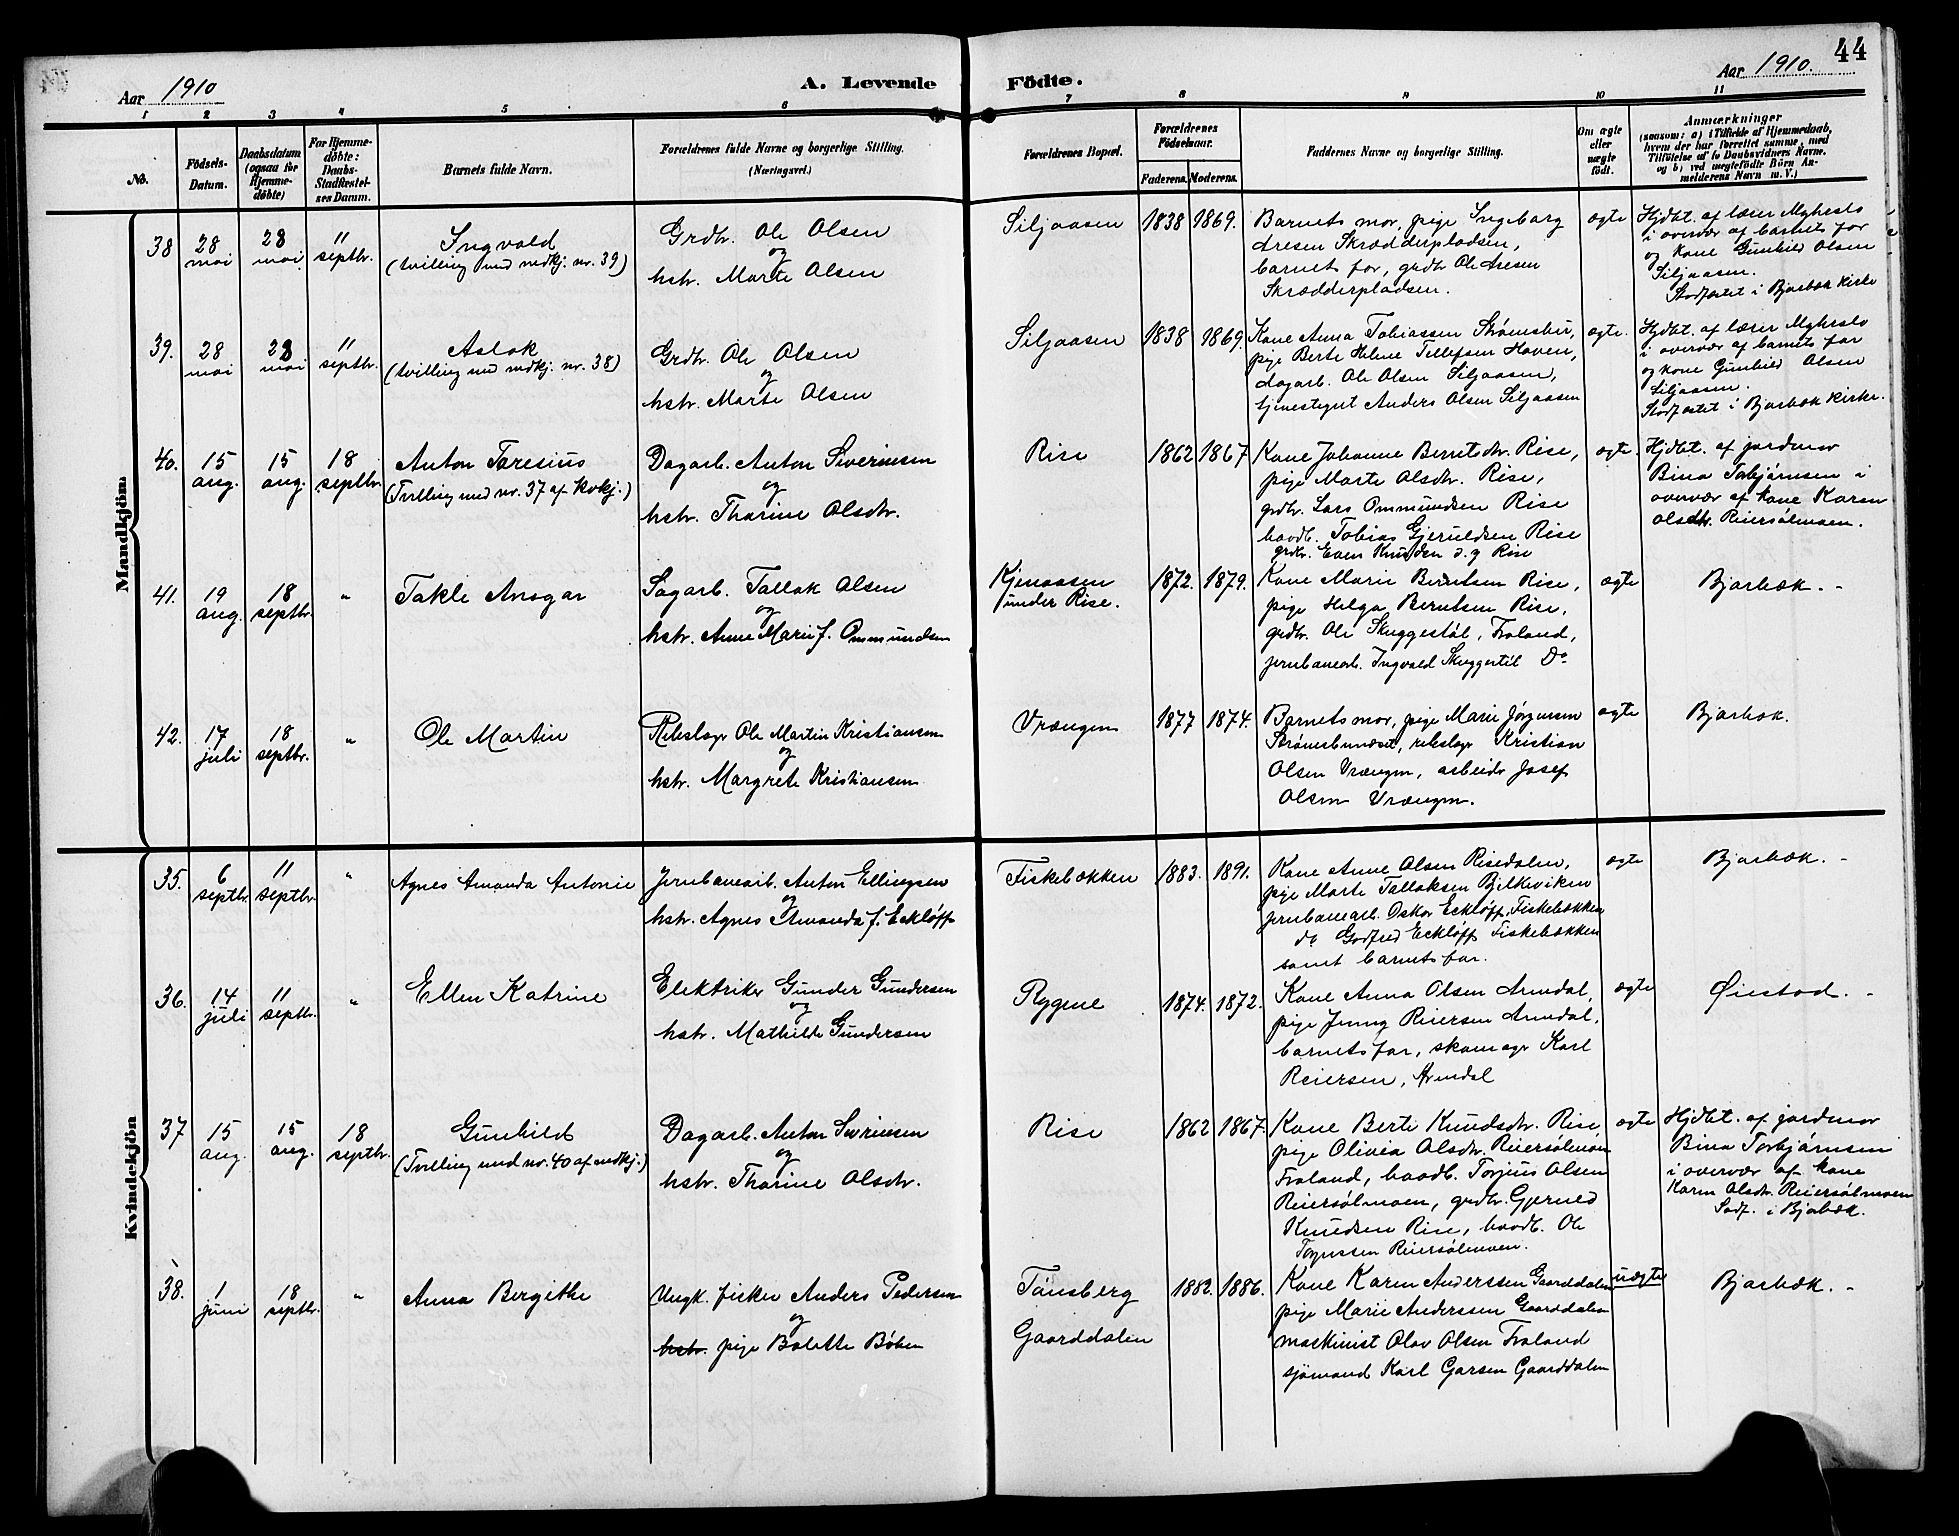 44
Aar 1910
A. Levende
Födte.
Aar 1910.
1 2 3 4 5 6 7 8 9 10 11
No.
Födsels-
Datum.
Daabsdatum
(ogsaa for
Hjemme-
döbte)
For Hjemme-
döbte:
Daabs-
Stadfæstel-
ses Datum.
Barnets fulde Navn.
Forældrenes fulde Navne og borgerlige Stilling.
(Næringsvei.)
Forældrenes Bopæl.
Forældrenes
Födselsaar.
Faderens. Moderens.
Faddernes Navne og borgerlige Stilling.
Om ægte
eller
uægte
födt.
Anmærkninger
(saasom: a) i Tilfælde af Hjemmedaab,
hvem der har forrettet samme, med
Tilföielse af to Daabsvidners Navne.
og b) ved uægtefödte Börn An-
melderens Navn m. V.)
Mandkjön
38 28 mai 28 mai 11 septbr.
Ingvald
(tvilling med mdkj. nr. 39)
Grdbr. Ole Olsen
og
hstr. Marte Olsen
Siljaasen 1838 1869.
Barnets mor, pige Ingeborg
Aresen Skrædderpladsen,
barnets far, grdbr Ole Aresen
Skrædderpladsen.
ægte
Hjdbt. af lærer
i overvær af barnets far
og kone Gunhild Olsen
Siljaasen.
Stadfæstet i Bjorbæk kirke
39. 28 mai 28 mai 11 septbr.
Aslak
(tvilling med mdkj. nr. 38)
Grdbr. Ole Olsen
og
hstr. Marte Olsen
Siljaasen 1838 1869.
Kone Anna Tobiassen Strømsbu,
pige Berte Helene Tellefsen Haven,
dagarb. Ole Olsen Siljaasen,
tjenestegut Anders Olsen Siljaasen
ægte.
Hjdbt. af lærer
i overvær af barnets far
og kone Gunhild Olsen
Siljaasen.
Stadfæstet i Bjorbæk kirke.
40. 15 aug. 15 aug. 18 septbr.
Anton Taresius
(Tvilling med nr. 37 af kvkj.)
Dagarb. Anton Severinsen
og
hstr. Tharine Olsdtr.
Rise 1862 1867
Kone Johanne Berntsdtr. Rise,
pige Marte Olsdtr. Rise,
grdbr. Lars Ommundsen Rise
baadb. Tobias Gjeruldsen Rise
grdbr. Even Knudsen d.y Rise
ægte.
Hjdbt. af jordmor
Bina Torbjørnsen i
overvær af kone Karen
Olsdtr. Reiersølmoen.
41. 19 aug. 18 septbr. "
Takle Ansgar
Sagarb. Tallak Olsen
og
hstr. Anne Marie f. Ommundsen
Kjenaasen
under Rise.
1872. 1879.
Kone Marie Berntsen Rise,
pige Helga Berntsen Rise,
grdbr. Ole Skuggestøl, Froland,
jernbanearb. Ingvald Skuggestøl Do
ægte
Bjorbæk. -
42. 17 juli 18 septbr. "
Ole Martin
Rebslager Ole Martin Kristiansen
og
hstr. Margrete Kristiansen
Vrængen 1877 1874.
Barnets mor, pige Marie Jørgensen
Strømsbuneset, rebslager Kristian
Olsen Vrængen, arbeider Josef
Olsen Vrængen.
ægte
Bjorbæk.
Kvindekjön
35. 6 septbr. 11 septbr. "
Agnes Amanda Antonie
Jernbanearb. Anton Ellingsen
og
hstr. Agnes Amanda f. Ecklöff
Fiskebækken 1883. 1891.
Kone Anne Olsen Risedalen,
pige Marte Tallaksen Bjelkeviken
jernbanearb. Oskar Ecklöff, Fiskebækken
do Godfred Ecklöff Fiskebækken
samt barnets far.
ægte
Bjorbæk. -
36. 14 juli 11 septbr. "
Ellen Katrine
Elektriker Gunder Gundersen
og
hstr. Mathilde Gundersen
Rygene 1874. 1872.
Kone Anna Olsen Arendal,
pige Jenny Reiersen Arendal,
barnets far, skomager Karl
Reiersen, Arendal
ægte
Øiestad. -
37 15 aug. 15 aug. 18 septbr.
Gunhild
(Tvilling med nr. 40 af mdkj.)
Dagarb. Anton Sevrinsen
og
hstr. Tharine Olsdtr.
Rise 1862 1867.
Kone Berte Knudsdtr. Rise
pige Olivia Olsdtr. Reiersølmoen
Froland, baadb. Torjus Olsen
Reiersølmoen, grdbr. Gjeruld
Knudsen Rise, baadb. Ole
Torjussen Reiersølmoen.
ægte
Hjdbt. af jordmor
Bina Torbjørnsen
i overvær af kone
Karen Olsdtr. Reiersølmoen
Stadf. i Bjorbæk.
38. 1 juni 18 septbr. "
Anna Bergithe
Ungk. fisker Anders Pedersen
og
hstr. pige Bolette Bøben
Tønsberg
Gaarddalen
1882. 1886.
Kone Karen Anderssen Gaarddalen
pige Marie Anderssen Gaarddalen
maskinist Olav Olsen Froland
sjømand Karl Garsen Gaarddalen
uægte
Bjorbæk. -